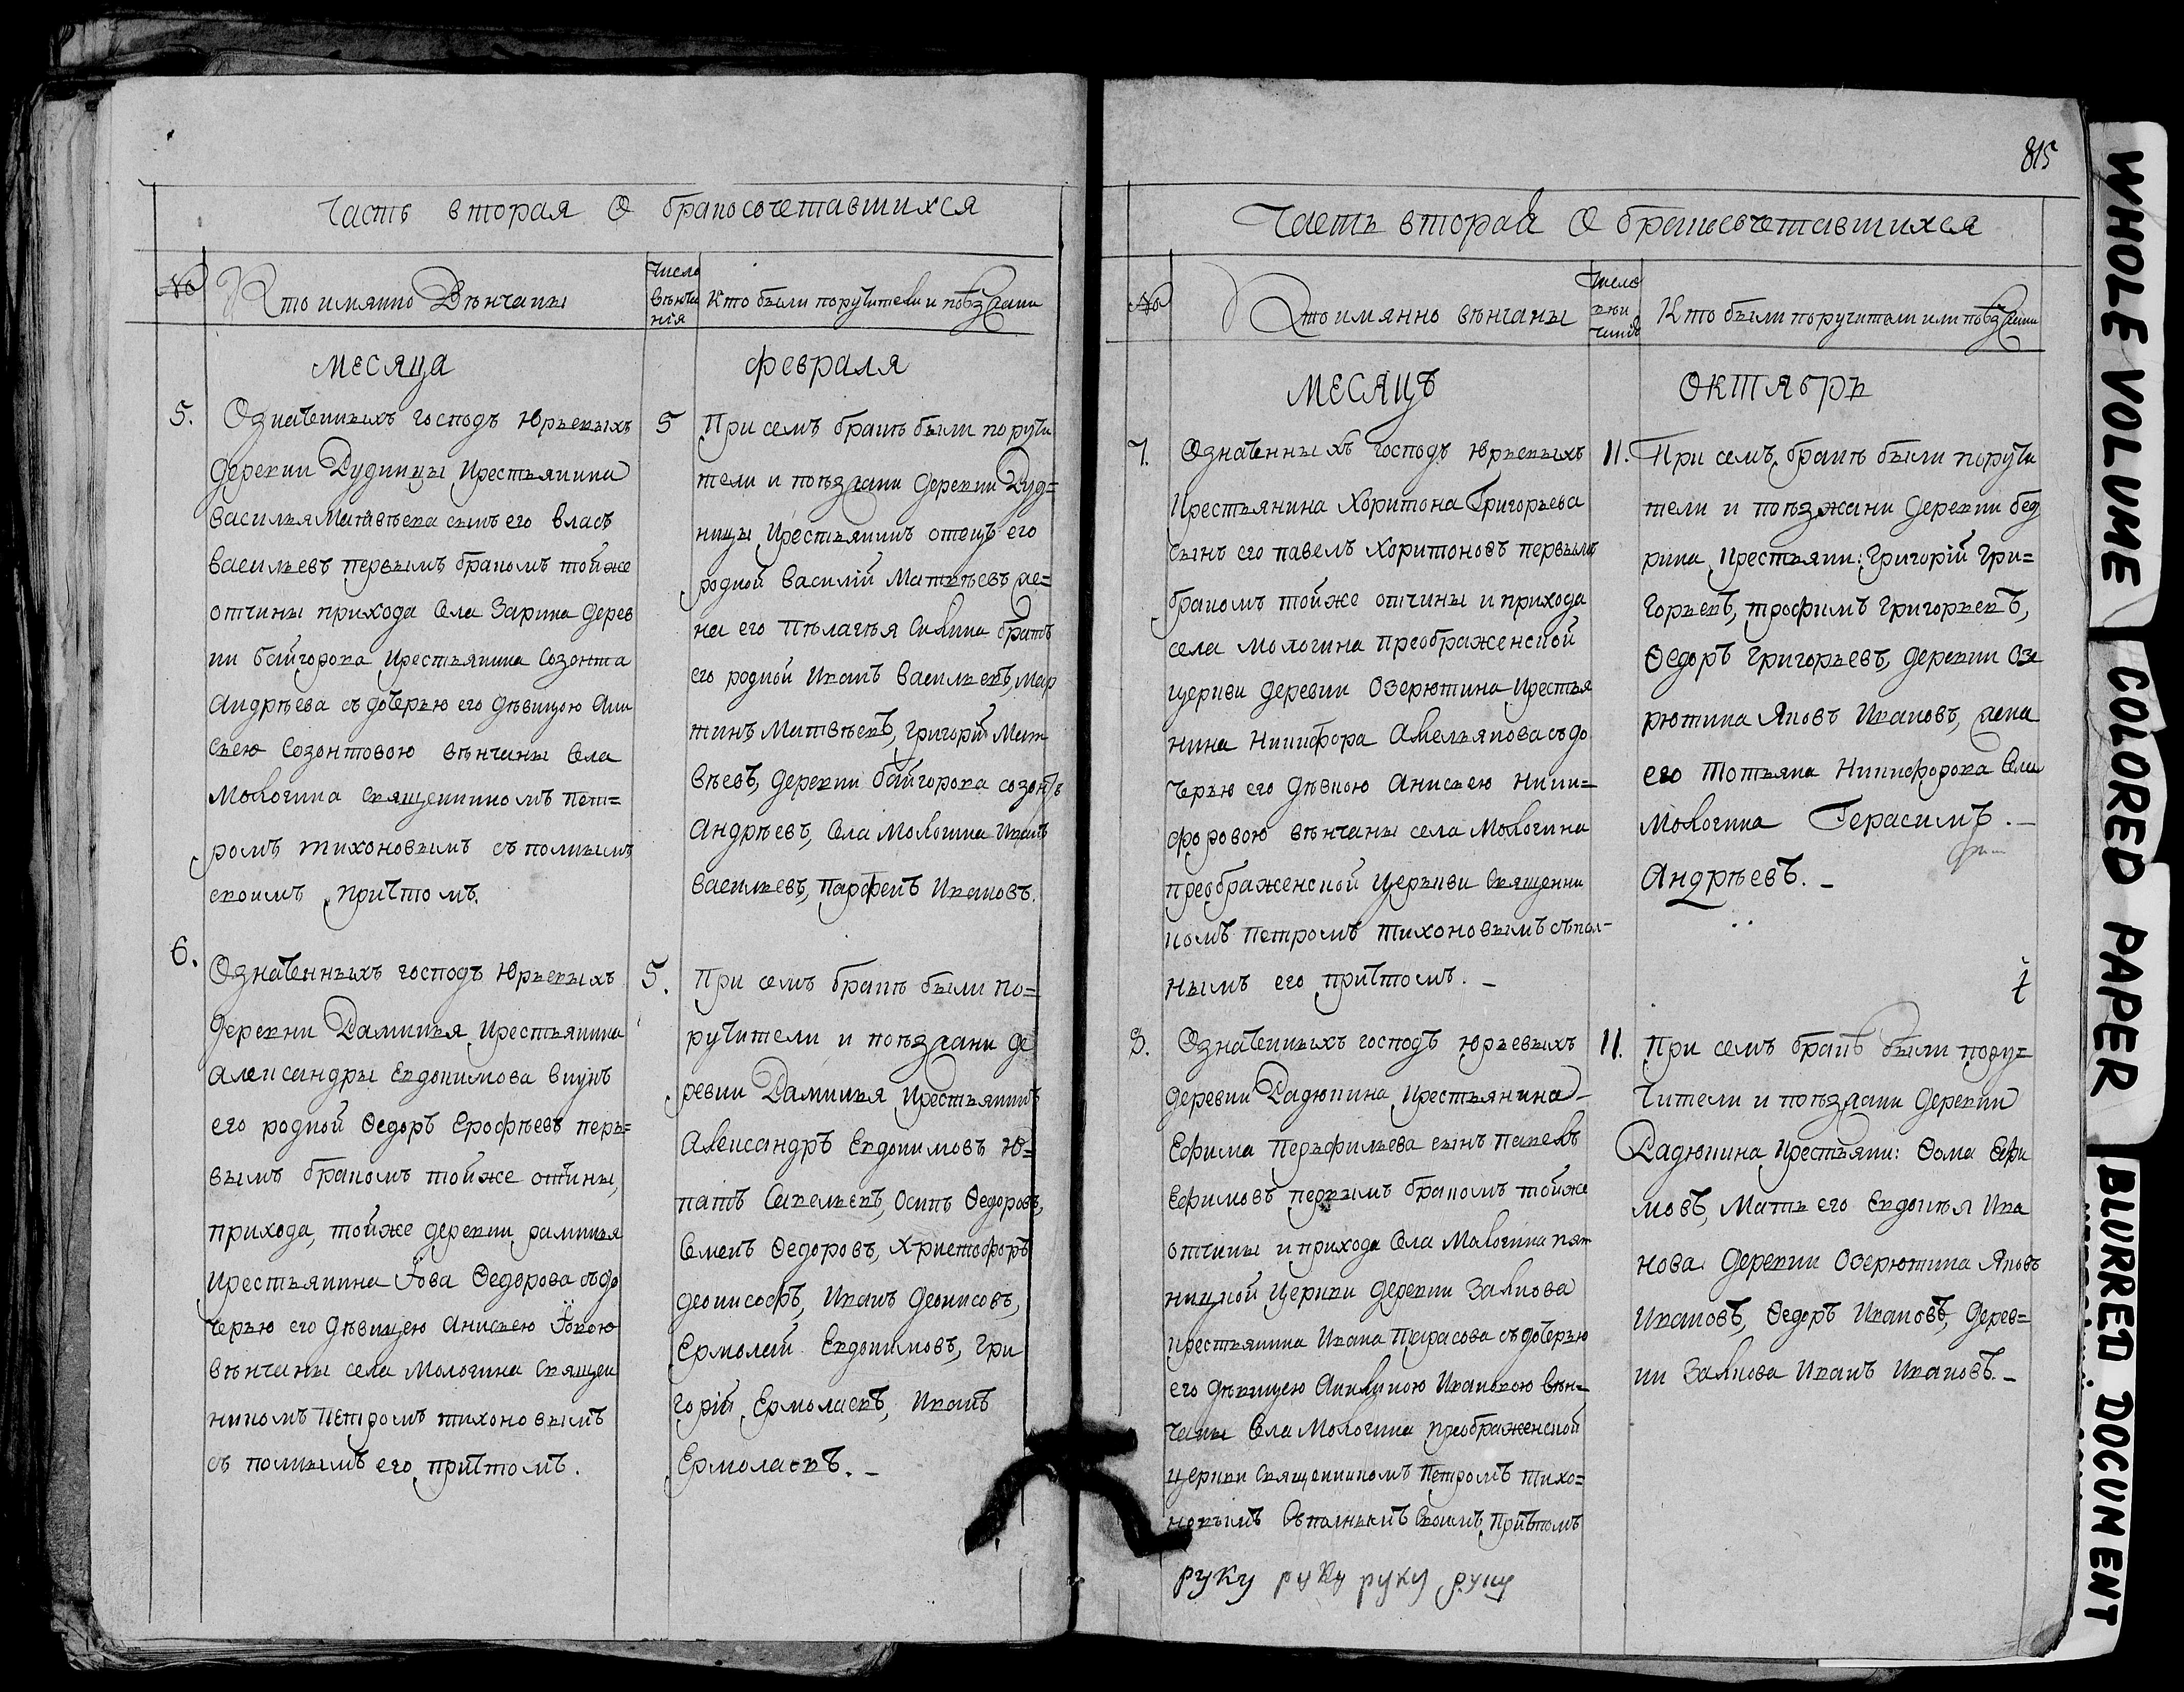 815
Часть вторая О бракосочетавшихся
№
Кто имянно Вѣнчаны
Число
вѣнча
нія
Кто были поручители и поѣзжани
Месяца
февраля
5.
Означенныхъ господъ Юрьевыхъ
деревни Дудницы крестьянина
василья Матвѣева сынъ его власъ
васильевъ первымъ бракомъ тойже
отчины прихода села Зарина дерев
ни байгорова крестьянина Созонта
Андрѣева съ дочерью его дѣвицою Ани
сьею Созонтовою вѣнчаны села
Мологина священникомъ пет=
ромъ тихоновымъ съ полнымъ
своимъ причтомъ.
5
При семъ бракѣ были поручи
тели и поѣзжани деревни Дуд=
ницы крестьянинъ отецъ его
родной василій Матвѣевъ же=
на его Пелагья братъ
его родной Иванъ васильевъ, Мар
тинъ Матвѣевъ, григорій Мат
вѣевъ, деревни байгорова созонтъ
Андрѣевъ, села Мологина Иванъ
васильевъ, парфенъ Ивановъ.
6.
Означенныхъ господъ Юрьевыхъ
деревни крестьянина
александры Евдокимова внукъ
его родной Ѳедоръ Ерофѣевъ пер=
вымъ бракомъ тойже отчины,
прихода, тойже деревни
крестьянина Іова Ѳедорова съ до
черью его дѣвицею анисьею Іовою
вѣнчаны села Мологина Священ
никомъ Петромъ тихоновымъ
съ полнымъ его причтомъ.
5.
При семъ бракѣ были по=
ручители и поѣзжани де
ревни крестьянинъ
Александръ Евдокимовъ
Савельевъ, Осипъ Ѳедоровъ,
Семенъ Ѳедоровъ, Христофоръ
деонисофъ, Иванъ деонисовъ,
Ермолай Евдокимовъ, гри
горій Ермолаевъ, Иванъ
Ермолаевъ.
Часть вторая О бракосочетавшихся
№
Кто имянно вѣнчаны
Число
Кто были поручители или поѣзжани
Месяцъ
октябрь
7.
Означенныхъ господъ Юрьевыхъ
крестьянина Харитона Григорьева
сынъ его павелъ Харитоновъ первымъ
бракомъ тойже отчины и прихода
села мологина преображенской
церкви деревни Озерютина крестья
нина Никифора Амельянова съ до
черью его дѣвкою Анисьею Ники=
форовою вѣнчаны села Мологина
преображенской церькви священни
комъ петромъ тихоновымъ съ пол-
нымъ его причтомъ.
11.
При семъ бракѣ были поручи
тели и поѣзжани деревни бед
рина крестьяни: григорій гри=
горьевъ, трофимъ григорьевъ,
Ѳедоръ григорьевъ, деревни Озе
рютина Яковъ Ивановъ, жена
его Татьяна Никифорова села
Мологина Герасимъ
Андрѣевъ.
8.
Означенныхъ господъ юрьевыхъ
деревни Радюкина крестьянина
Ефима Перьфильева сынъ павелъ
Ефимовъ первымъ бракомъ тойже
отчины и прихода села Мологина пят
ницкой церкви деревни Залкова
крестьянина Ивана Тарасова съ дочерью
его дѣвицею Акилиною Ивановою вѣн=
чаны села Мологина преображенской
церкви священникомъ петромъ тихо=
новымъ съ полнымъ своимъ причтомъ
11.
При семъ бракѣ были пору=
чители и поѣзжани деревни
Радюкина крестьяни: Ѳома Ефи
мовъ, Мать его Евдокѣя Ива
нова деревни Озерютина Яковъ
Ивановъ, Ѳедоръ Ивановъ, дерев=
ни Залкова Иванъ Ивановъ.
руку руку руку руку
WHOLE VOLUME
COLORED PAPER
BLURRED DOCUMENT